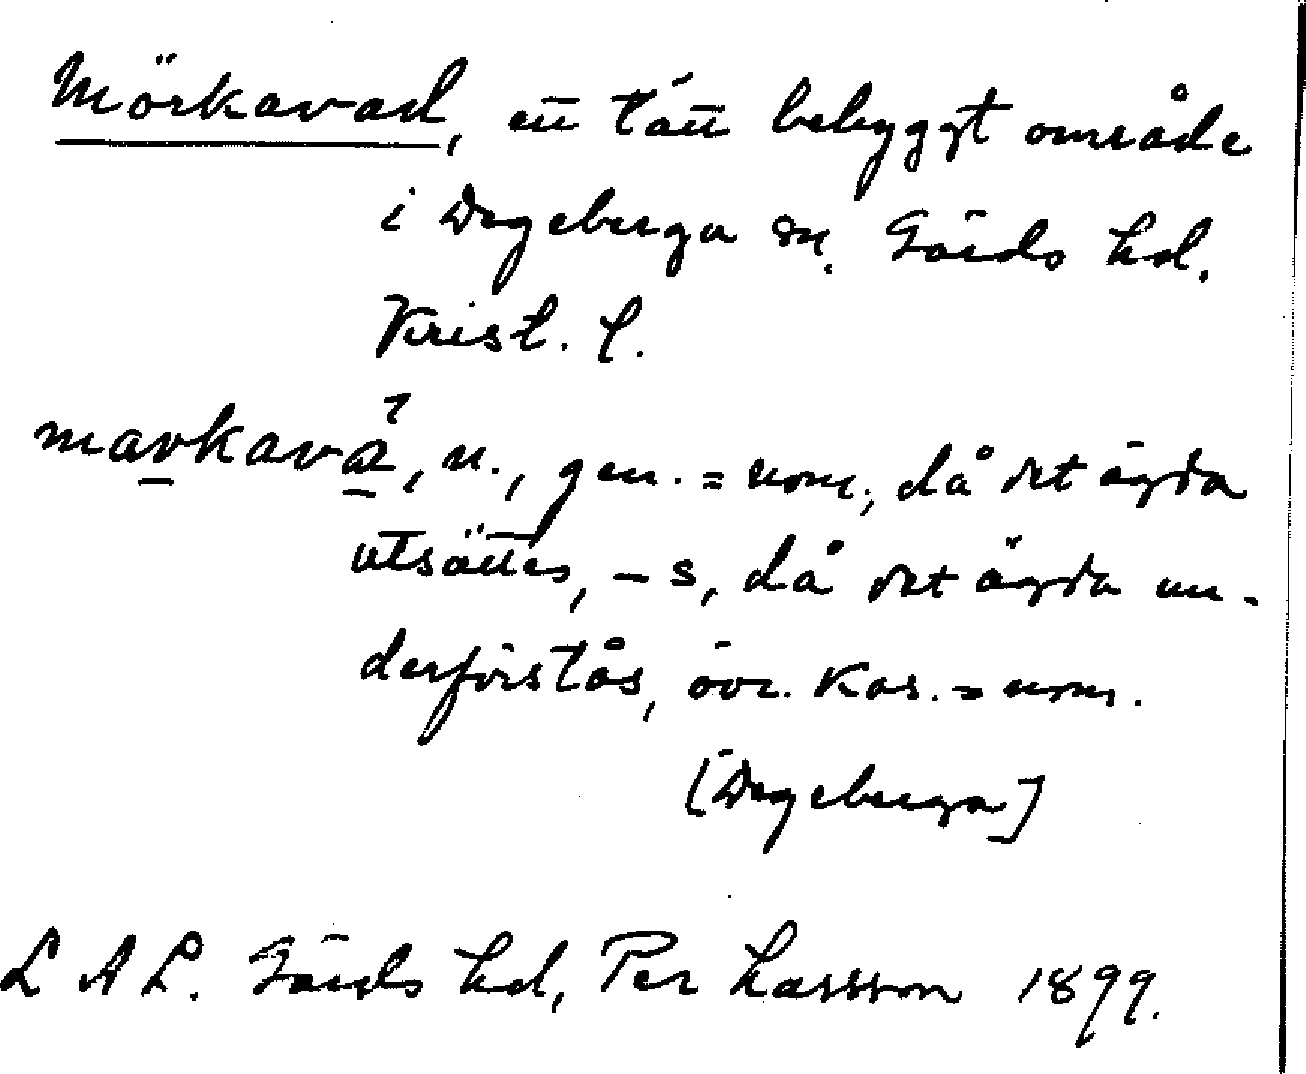 Mörkavad, ett tätt bebyggt område
i Degeberga sn. Gärds hd.
Krist. l.
markava, n., gen. = nom., då det ägda
utsättes, -s, då det ägda un-
derförstås, övr. kas. = nom.
[Degeberga]
L A L. Gärds hd, Per Larsson 1899.